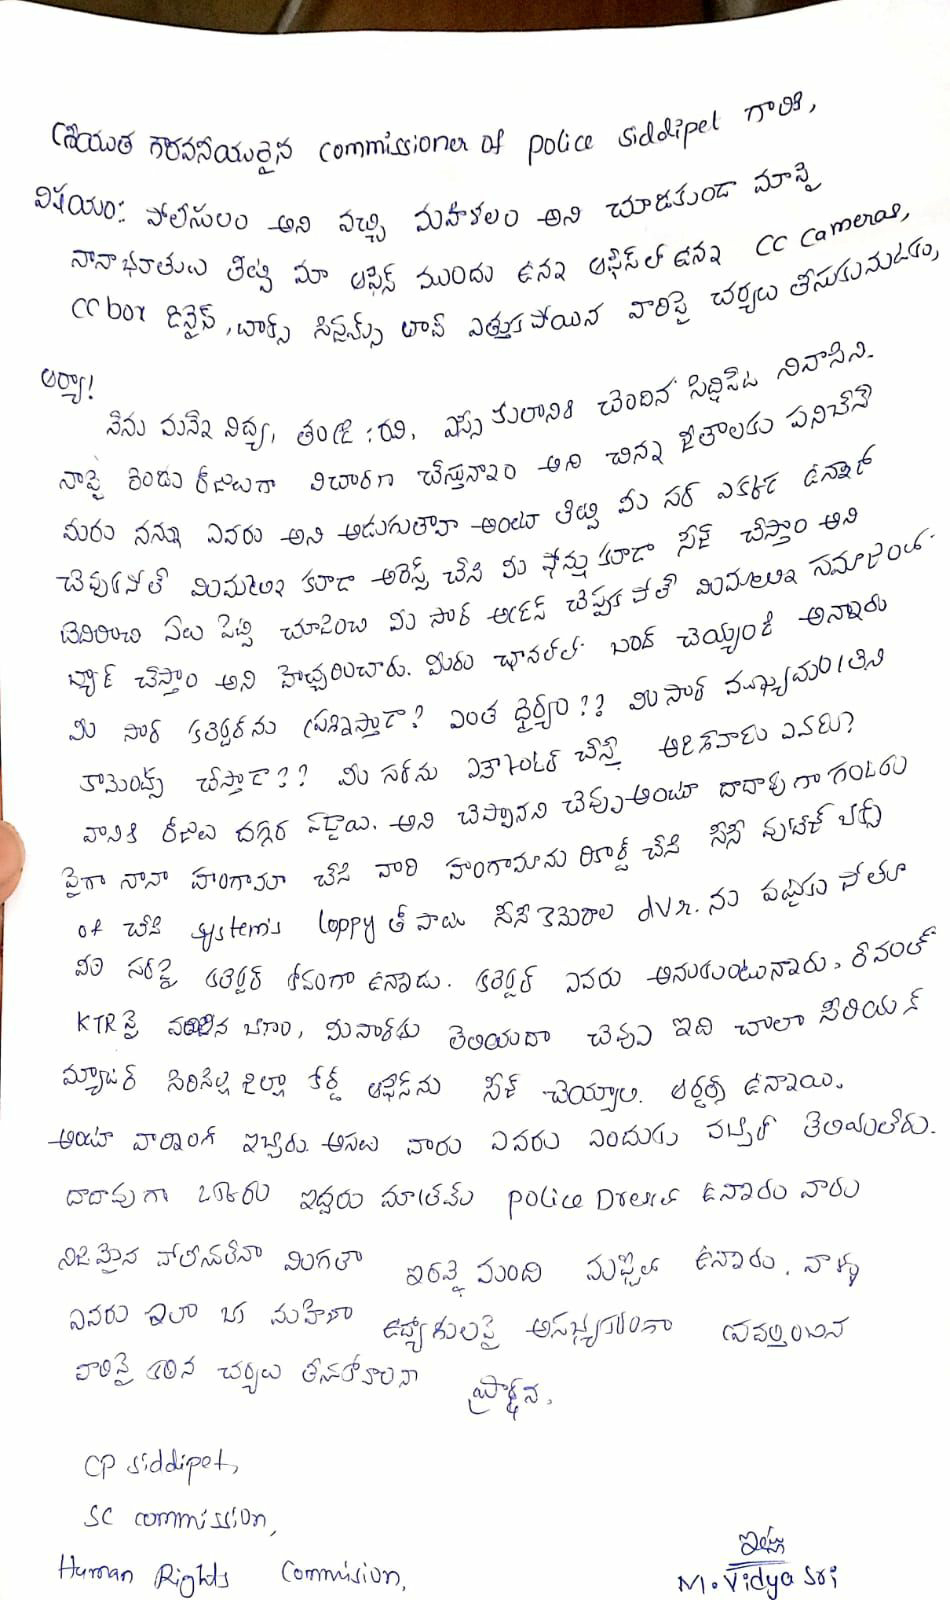 శ్రీయుత గౌరవనీయులైన commissioner of police siddipet గారికి,
విషయం: పోలీసులం అని వచ్చి మహిళలం అని చూడకుండా మాపై
నానా భూతులు తిట్టి మా ఆఫీస్ ముందు ఉన్న ఆఫీస్ లో ఉన్న CC Cameras,
CC box డివైస్, బాక్స్ సిస్టమ్స్ లాప్ ఎత్తుకపోయిన వారిపై చర్యలు తీసుకునుటకు,
అర్యా!
నేను మచ్చే విద్య, తండ్రి : రవి, ఎస్సీ కులానికి చెందిన సిద్దిపేట నివాసిని.
నాపై రెండు రోజులుగా విచారణ చేస్తున్నాం అని చిన్న జీతాలకు పనిచేసే
మీరు నన్ను ఎవరు అని అడుగుతావా అంటూ తిట్టి మీ సర్ ఎక్కడ ఉన్నాడో
చెప్పకపోతే మిమ్మల్ని కూడా అరెస్ట్ చేసి మీ ఫోన్లు కూడా సీజ్ చేస్తాం అని
బెదిరించి ఏలు పెట్టి చూపించి మీ సార్ అడ్రస్ చెప్పక పోతే మిమ్మల్ని
చేస్తాం అని హెచ్చరించారు. మీరు ఛానల్ బంద్ చెయ్యండి అన్నారు
మీ సార్ కలెక్టర్ ను ప్రశ్నిస్తాడా? ఎంత ధైర్యం?? మీ సార్ ముఖ్యమంత్రిని
కామెంట్స్ చేస్తాడా?? మీ సర్ ను ఎన్‌కౌంటర్ చేస్తే ఎవరు?
వానికి రోజులు దగ్గర పడ్డాయి. అని చెప్పామని చెప్పు అంటూ దాదాపుగా గంటకు
పైగా నానా హంగామా చేసి వారి హంగామాను రికార్డ్ చేసి సీసీ
of చేసి system's loppy తో పాటు సీసీ కెమెరాల dvr. ను పట్టుకు పోతూ
మీ సర్ పై కలెక్టర్ కోపంగా ఉన్నాడు. కలెక్టర్ ఎవరు అనుకుంటున్నారు, రేవంత్
KTR పై బాణం, మీ సార్ కు తెలియదా చెప్పు ఇది చాలా సీరియస్
మ్యాటర్ సిరిసిల్ల జిల్లా కోర్ట్ ఆఫీస్ ను సీజ్ చెయ్యాలి. ఆర్డర్స్ ఉన్నాయి.
అంటూ వార్నింగ్ ఇచ్చారు. అసలు వారు ఎవరు ఎందుకు వచ్చారో తెలియలేదు.
దాదాపుగా ఒకరు ఇద్దరు మాత్రమే police Dress లో ఉన్నారు వారు
నిజమైన పోలీసులేనా మిగతా ఇరవై మంది మఫ్టీలో ఉన్నారు. వాళ్ళు
ఎవరు ఇలా ఒక మహిళా ఉద్యోగులపై అసభ్యకరంగా ప్రవర్తించిన
వారిపై కఠిన చర్యలు తీసుకోవాలని ప్రార్థన.
CP siddipet,
SC commission,
Human Rights Commision,
ఇట్లు
M. Vidya Sri